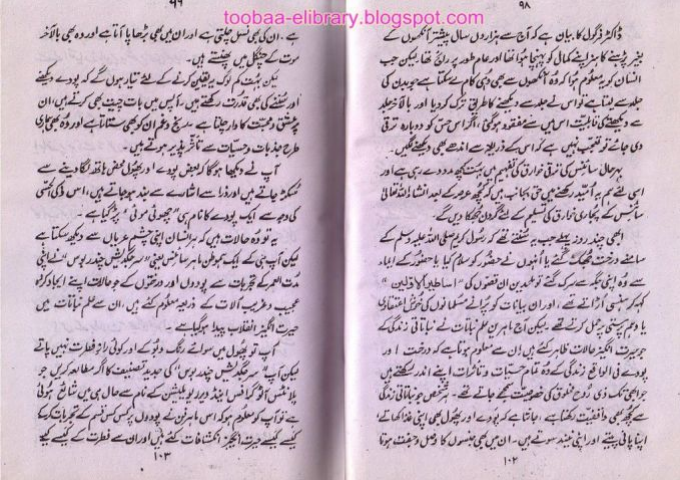 toobaa-elibrary.blogspot.com
۹۸
ڈاکٹر فرگول کا بیان ہے کہ آج سے ہزاروں سال پیشتر آنکھوں کے
بغیر پڑھنے کا ہنر اپنے کمال کو پہنچا ہوا تھا اور عام طور پر رائج تھا۔ لیکن جب
انسان کو یہ معلوم ہوا کہ وہ آنکھوں سے بھی وہی کام لے سکتا ہے جو بدن کی
جلد سے لیتا ہے تو اس نے جلد سے دیکھنے کا طریق ترک کر دیا اور بالآخر جلد
سے دیکھنے کی قابلیت اس میں سے مفقود ہو گئی، اگر اس حس کو دوبارہ ترقی
دی جائے تو تعجب نہیں ہے کہ اس کے ذریعہ سے اندھے بھی دیکھنے لگیں۔
بہرحال سائنس کی ترقی خوارق کی تفہیم میں بہت کچھ مدد دے رہی ہے اور
اسی لئے ہم یہ امید رکھنے میں حق بجانب ہیں کہ کچھ عرصہ کے بعد انشاء اللہ تعالیٰ
سائنس کے پجاری خوارق کی تسلیم کے لئے گردن جھکا دیں گے۔
ابھی چند روز پہلے جب یہ سنتے تھے کہ رسول کریم صلی اللہ علیہ وسلم کے
سامنے درخت جھک گئے یا انہوں نے حضور کو سلام کیا یا حضور کے ایماء
سے وہ اپنی جگہ سے سرک گئے تو ملحدین ان قصوں کی "اساطیر الاولین"
کہہ کر ہنسی اڑاتے تھے، اور ان بیانات کو پرانے مسلمانوں کی خوش اعتقادی
یا وہم پرستی پر حمل کرتے تھے۔ لیکن آج ماہرین علم نباتات نے نباتاتی زندگی کے
جو حیرت انگیز حالات ظاہر کئے ہیں ان سے معلوم ہوتا ہے کہ درخت اور
پودے فی الواقع زندگی کے وہ تمام حسیات و تاثرات اپنے اندر رکھتے ہیں
جو ابھی تک ذی روح مخلوق کی خصوصیت سمجھے جاتے تھے۔ ہر شخص جو نباتاتی زندگی
سے کچھ بھی واقفیت رکھتا ہے، جانتا ہے کہ پودے اور پھول بھی اپنی غذا کھاتے
اپنا پانی پیتے اور اپنی نیند سوتے ہیں۔ ان میں بھی جنسوں کا وصل و جفت ہوتا
۱۰۲
۹۹
ہے۔ ان کی بھی نسل چلتی ہے اور ان میں بھی بڑھاپا آتا ہے اور وہ بھی بالآخر
موت کے چنگل میں پھنستے ہیں۔
لیکن بہت کم لوگ یہ یقین کرنے کے لئے تیار ہوں گے کہ پودے دیکھنے
اور سننے کی بھی قدرت رکھتے ہیں، آپس میں بات چیت بھی کرتے ہیں، ان
پر عشق و محبت کا وار چلتا ہے۔ رنج و غم ان کو بھی ستاتا ہے اور وہ بھی ہماری
طرح جذبات و حسیات سے تاثر پذیر ہوتے ہیں۔
آپ نے دیکھا ہوگا کہ بعض پودے اور پھول محض ہاتھ لگا دینے سے
سکڑ جاتے ہیں اور ذرا سے اشارے سے بند ہو جاتے ہیں، اس ذکی الحسی
کی وجہ سے ایک پودے کا نام ہی "چھوئی موئی" پڑ گیا ہے۔
یہ تو وہ حالات ہیں کہ ہر انسان اپنی چشم عریاں سے دیکھ سکتا ہے
لیکن آپ ہی کے ایک ہموطن ماہر سائنس یعنی "سر جگدیش چندر بوس" نے اپنی
مدت العمر کے تجربات سے پودوں اور درختوں کے جو حالات اپنے ایجاد کردہ
عجیب و غریب آلات کے ذریعہ معلوم کئے ہیں، ان سے علم نباتات میں
حیرت انگیز انقلاب پیدا ہو گیا ہے۔
آپ تو پھول میں سوائے رنگ و بو کے اور کوئی راز فطرت نہیں پاتے
لیکن آپ "سر جگدیش چندر بوس" کی جدید تصنیف کا اگر مطالعہ کریں جو
پلانٹس آٹو گرافس اینڈ دیر ریویلیشن کے نام سے حال ہی میں شائع ہوئی
ہے تو آپ کو معلوم ہو کہ اس ماہر فن نے پودوں پر کس کس قسم کے تجربات کر کے
کیسے کیسے حیرت انگیز انکشافات کئے ہیں اور ان سے فطرت کے کیسے کیسے
۱۰۳